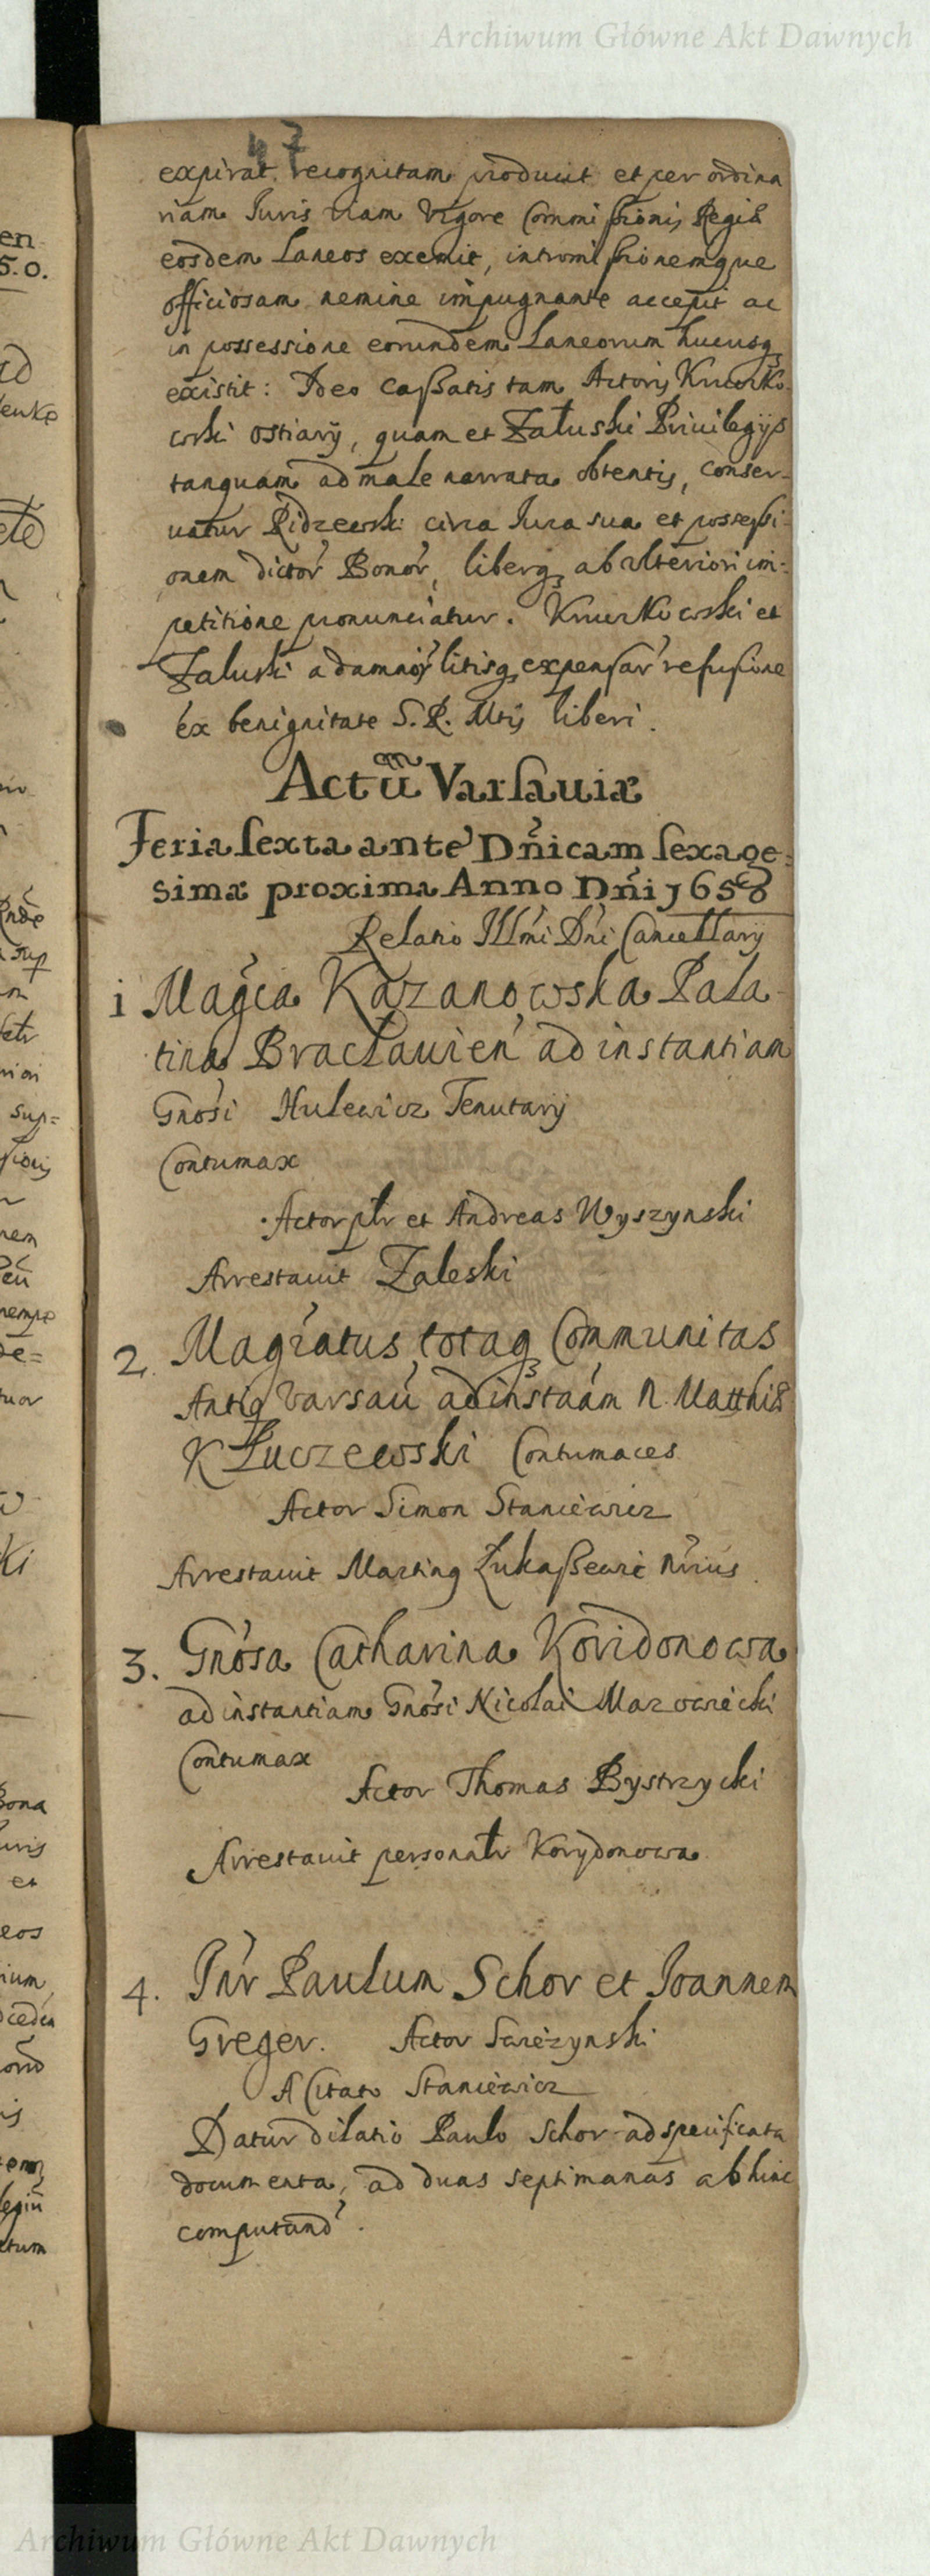 Archiwum Główne Akt Dawnych
47
expirat recognitam produxit et per ordina
riam Iuris viam vigore Commissionis Regiæ
eosdem Laneos exemit, intromissionemque
officiosam nemine impugnante accepit ac
in possessione eorundem Laneorum hucusq3
existit: Ideo Cassatis tam Actoris Knurko
wski ostiarij, quam et Załuski Priuilegijs
tanquam ad male narrata obtentis, conser-
uatur Ridzewski circa Iura sua et possessi-
onem dictor' Bonor', liberq3 ab ulteriori im-
petitione pronunciatur. Knurkowski et
Zaluski a damnor' litisq3 expensar' refusione
ex benignitate S. R. Mtis liberi.
Actũ Varsauiæ
Feria sexta ante Dñicam sexage-
simæ proxima Anno Dñi 1658
Relatio Illmi Dñi Cancellarij
1 Magca Kazanowska Pala-
tina Bracłauien' ad instantiam
Gnosi Hulewicz Tenutarij
Contumax
Actor pltr et Andreas Wyszynski
Arrestauit Zaleski
2. Magratus, totaq3 Communitas
Antiq Varsau' ad instaam N. Matthiæ
Kłuczewski Contumaces
Actor Simon Staniewicz
Arrestauit Martinq Łukaßewic Nrius.
3. Gnosa Catharina Koridonowa
ad instantiam Gnosi Nicolai Mazowiecki
Contumax
Actor Thomas Bystrzycki
Arrestauit personatr Korydonowa.
4. Inr Paulum Schor et Ioannem
Greger. Actor Swiezynski
A Citato Staniewicz
Datur dilatio Paulo Schor ad specificata
documenta, ad duas septimanas ab hinc
computand'.
Archiwum Główne Akt Dawnych